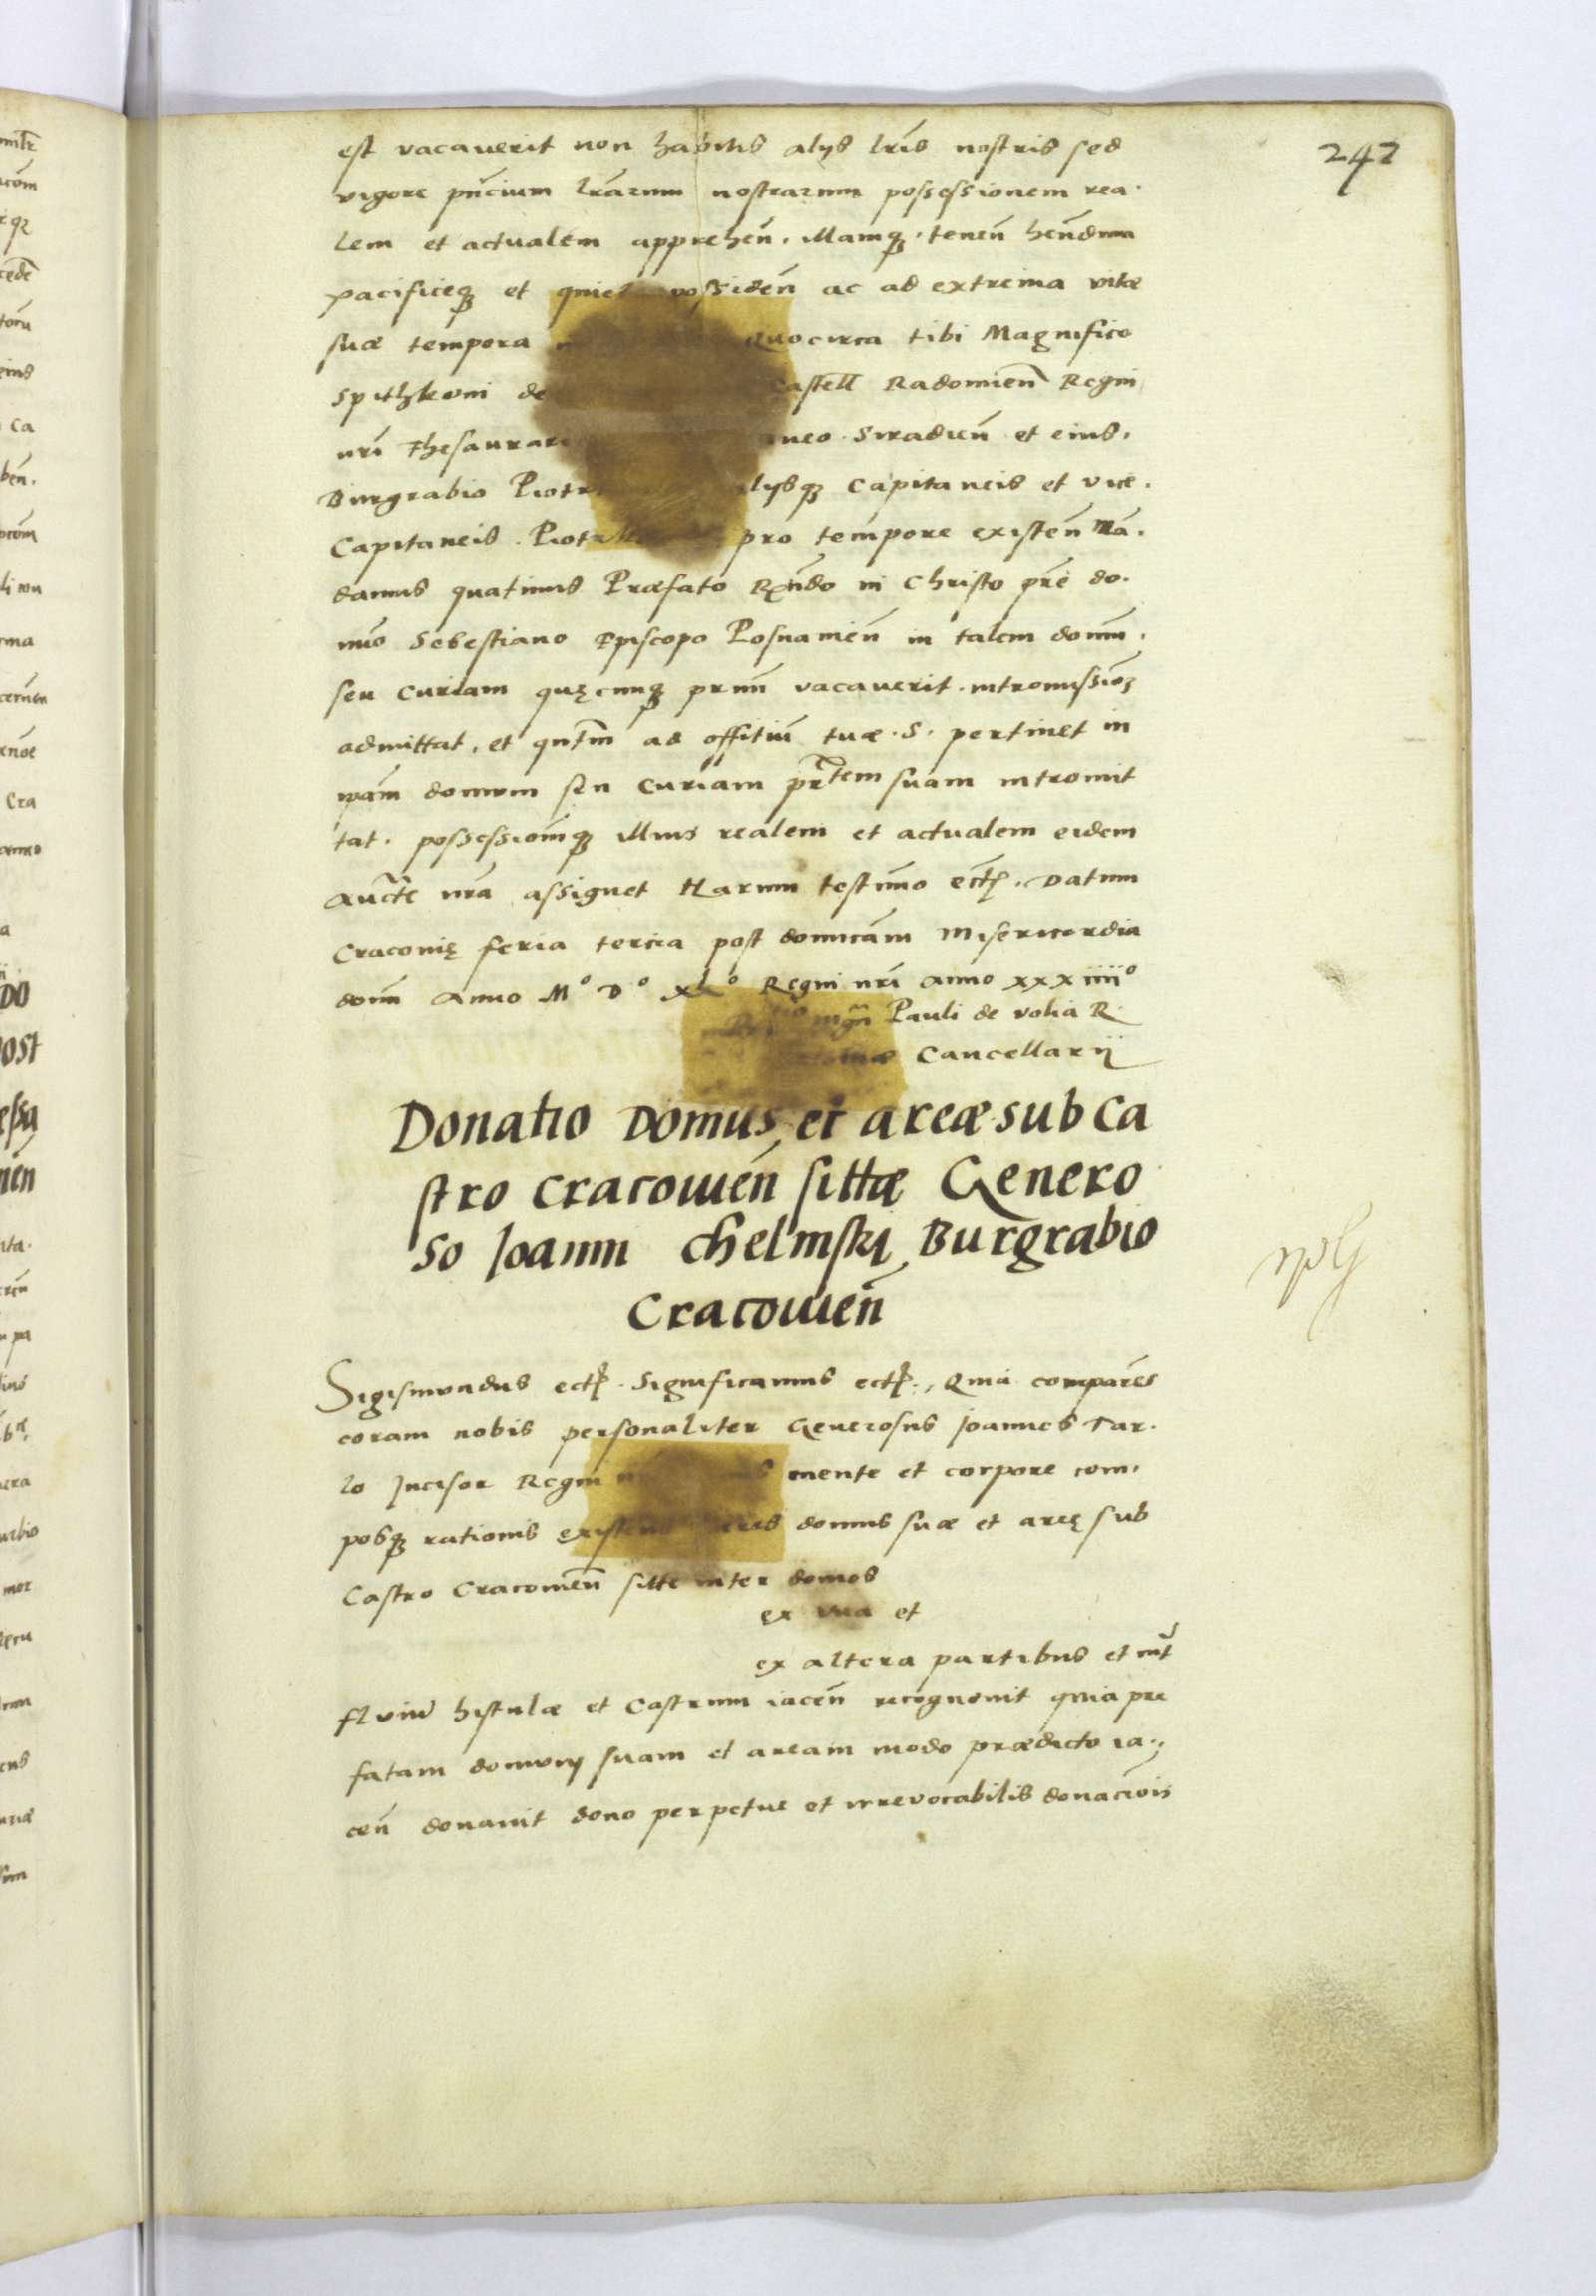 242
est vacauerit non habitis alijs lr̃is nostris sed
vigore pñcium lr̃arum nostrarum possessionem rea.
lem et actualem apprehen̄. illamqꝫ. tenen̄ hen̄dum
pacificeqꝫ et possiden̄ ac ad extrema vitæ
suæ tempora quocirca tibi Magnifico
Spithkoni de Castell Radomien̄ Regni
nr̃i Thesaurari Siradien̄ et eius.
Burgrabio alijsqꝫ Capitaneis et vice.
Capitaneis. pro tempore existen̄ Mā.
damus quatinus Præfato Rn̄do in Christo pr̄e do.
mĩo Sebestiano Episcopo Posnanien̄ in talem domũ.
seu Curiam quęcunqꝫ primũ vacauerit. intromissioẽ
admittat. et qntm̄ ad offitiũ tuæ. S. pertinet in
ip̃am domum seu Curiam pr̄tem suam intromit
tat. possessionẽqꝫ illius realem et actualem eidem
Auctẽ nr̃a assignet Harum testimõ ectꝭ. Datum
Craconię feria tercia post domicãm Misericordia
domĩ Anno Mº Dº xlº Regni nr̃i anno xxxiiiiº
mgci Pauli de volia R.
Cancellarij
Donatio Domus et areæ sub Ca
stro Cracouien̄ sittæ Genero
so Joanni Chelmski Burgrabio
Cracouien̄
Sigismundus ectꝭ. Significamus ectꝭ., Quia comparẽs
coram nobis personaliter Generosus Joannes Tar.
lo Incisor Regni mente et corpore com.
posqꝫ rationis existens domus suæ et aręę sub
Castro Cracouien̄ sitte inter domos
ex vna et
ex altera partibus et int̃
fluuiũ histulæ et Castrum iacen̄ recognouit quia pre
fatam domum suam et aream modo prædicto ia.,
cen̄ donauit dono perpetue et irreuocabilis donacõis